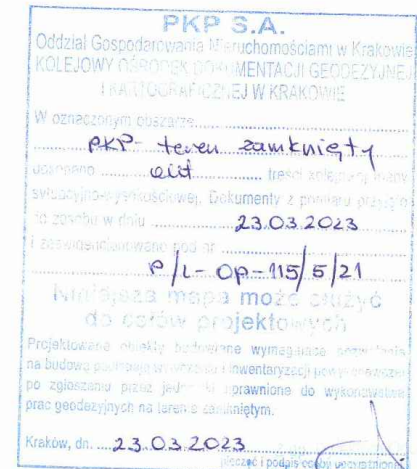 PKP S.A.
Oddział Gospodarowania Nieruchomościami w Krakowie
KOLEJOWY OŚRODEK DOKUMENTACJI GEODEZYJNEJ
I KARTOGRAFICZNEJ W KRAKOWIE
W oznaczonym obszarze
PKP - teren zamknięty
treści kolejowej mapy
sytuacyjno-wysokościowej. Dokumenty z pomiaru przyjęto
do zasobu w dniu 23.03.2023
i zaewidencjonowano pod nr
P/L-OP-115/5/21
Niniejsza mapa może służyć
do celów projektowych
Projektowane obiekty budowlane wymagające pozwolenia
na budowę i inwentaryzacji powykonawczej
po zgłoszeniu przez jednostki uprawnione do wykonywania
prac geodezyjnych na terenach zamkniętym.
Kraków, dn. 23.03.2023
pieczęć i podpis osoby upoważnionej